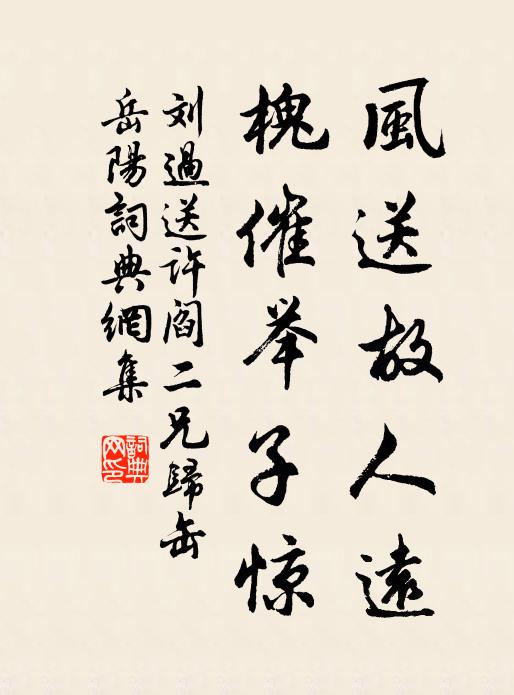 風送故人遠
槐催举子惊
刘過送許閻二兄歸岳
岳陽詞典網集
詞典网印